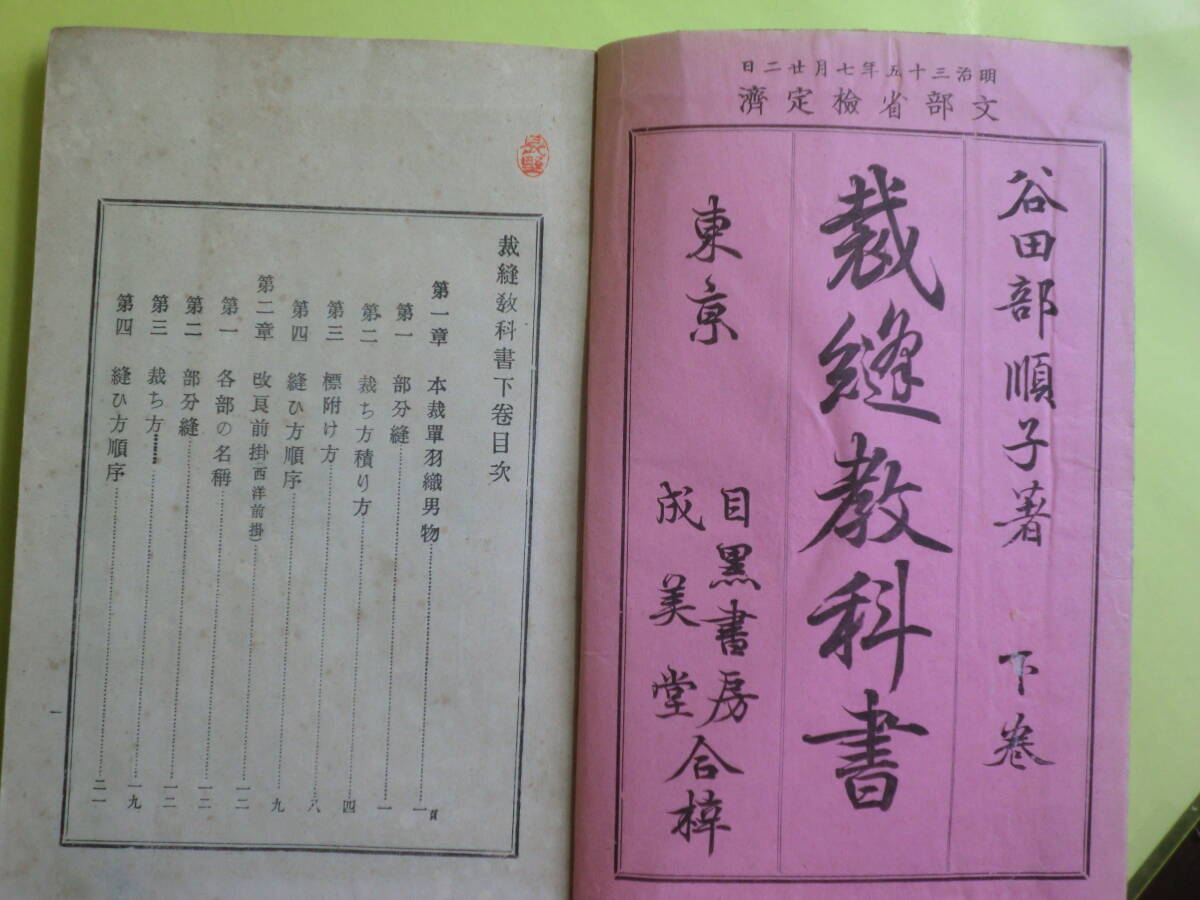 明治三十五年七月廿二日
文部省檢定濟
谷田部順子著 下卷
裁縫教科書
東京 目黑書房 成美堂 合梓
裁縫敎科書下卷目次
第一章 本裁單羽織男物 一頁
第一 部分縫 一
第二 裁ち方積り方 四
第三 標附け方 八
第四 縫ひ方順序 九
第二章 改良前掛(西洋前掛) 一二
第一 各部の名稱 一二
第二 部分縫 一二
第三 裁ち方 一九
第四 縫ひ方順序 二一
一